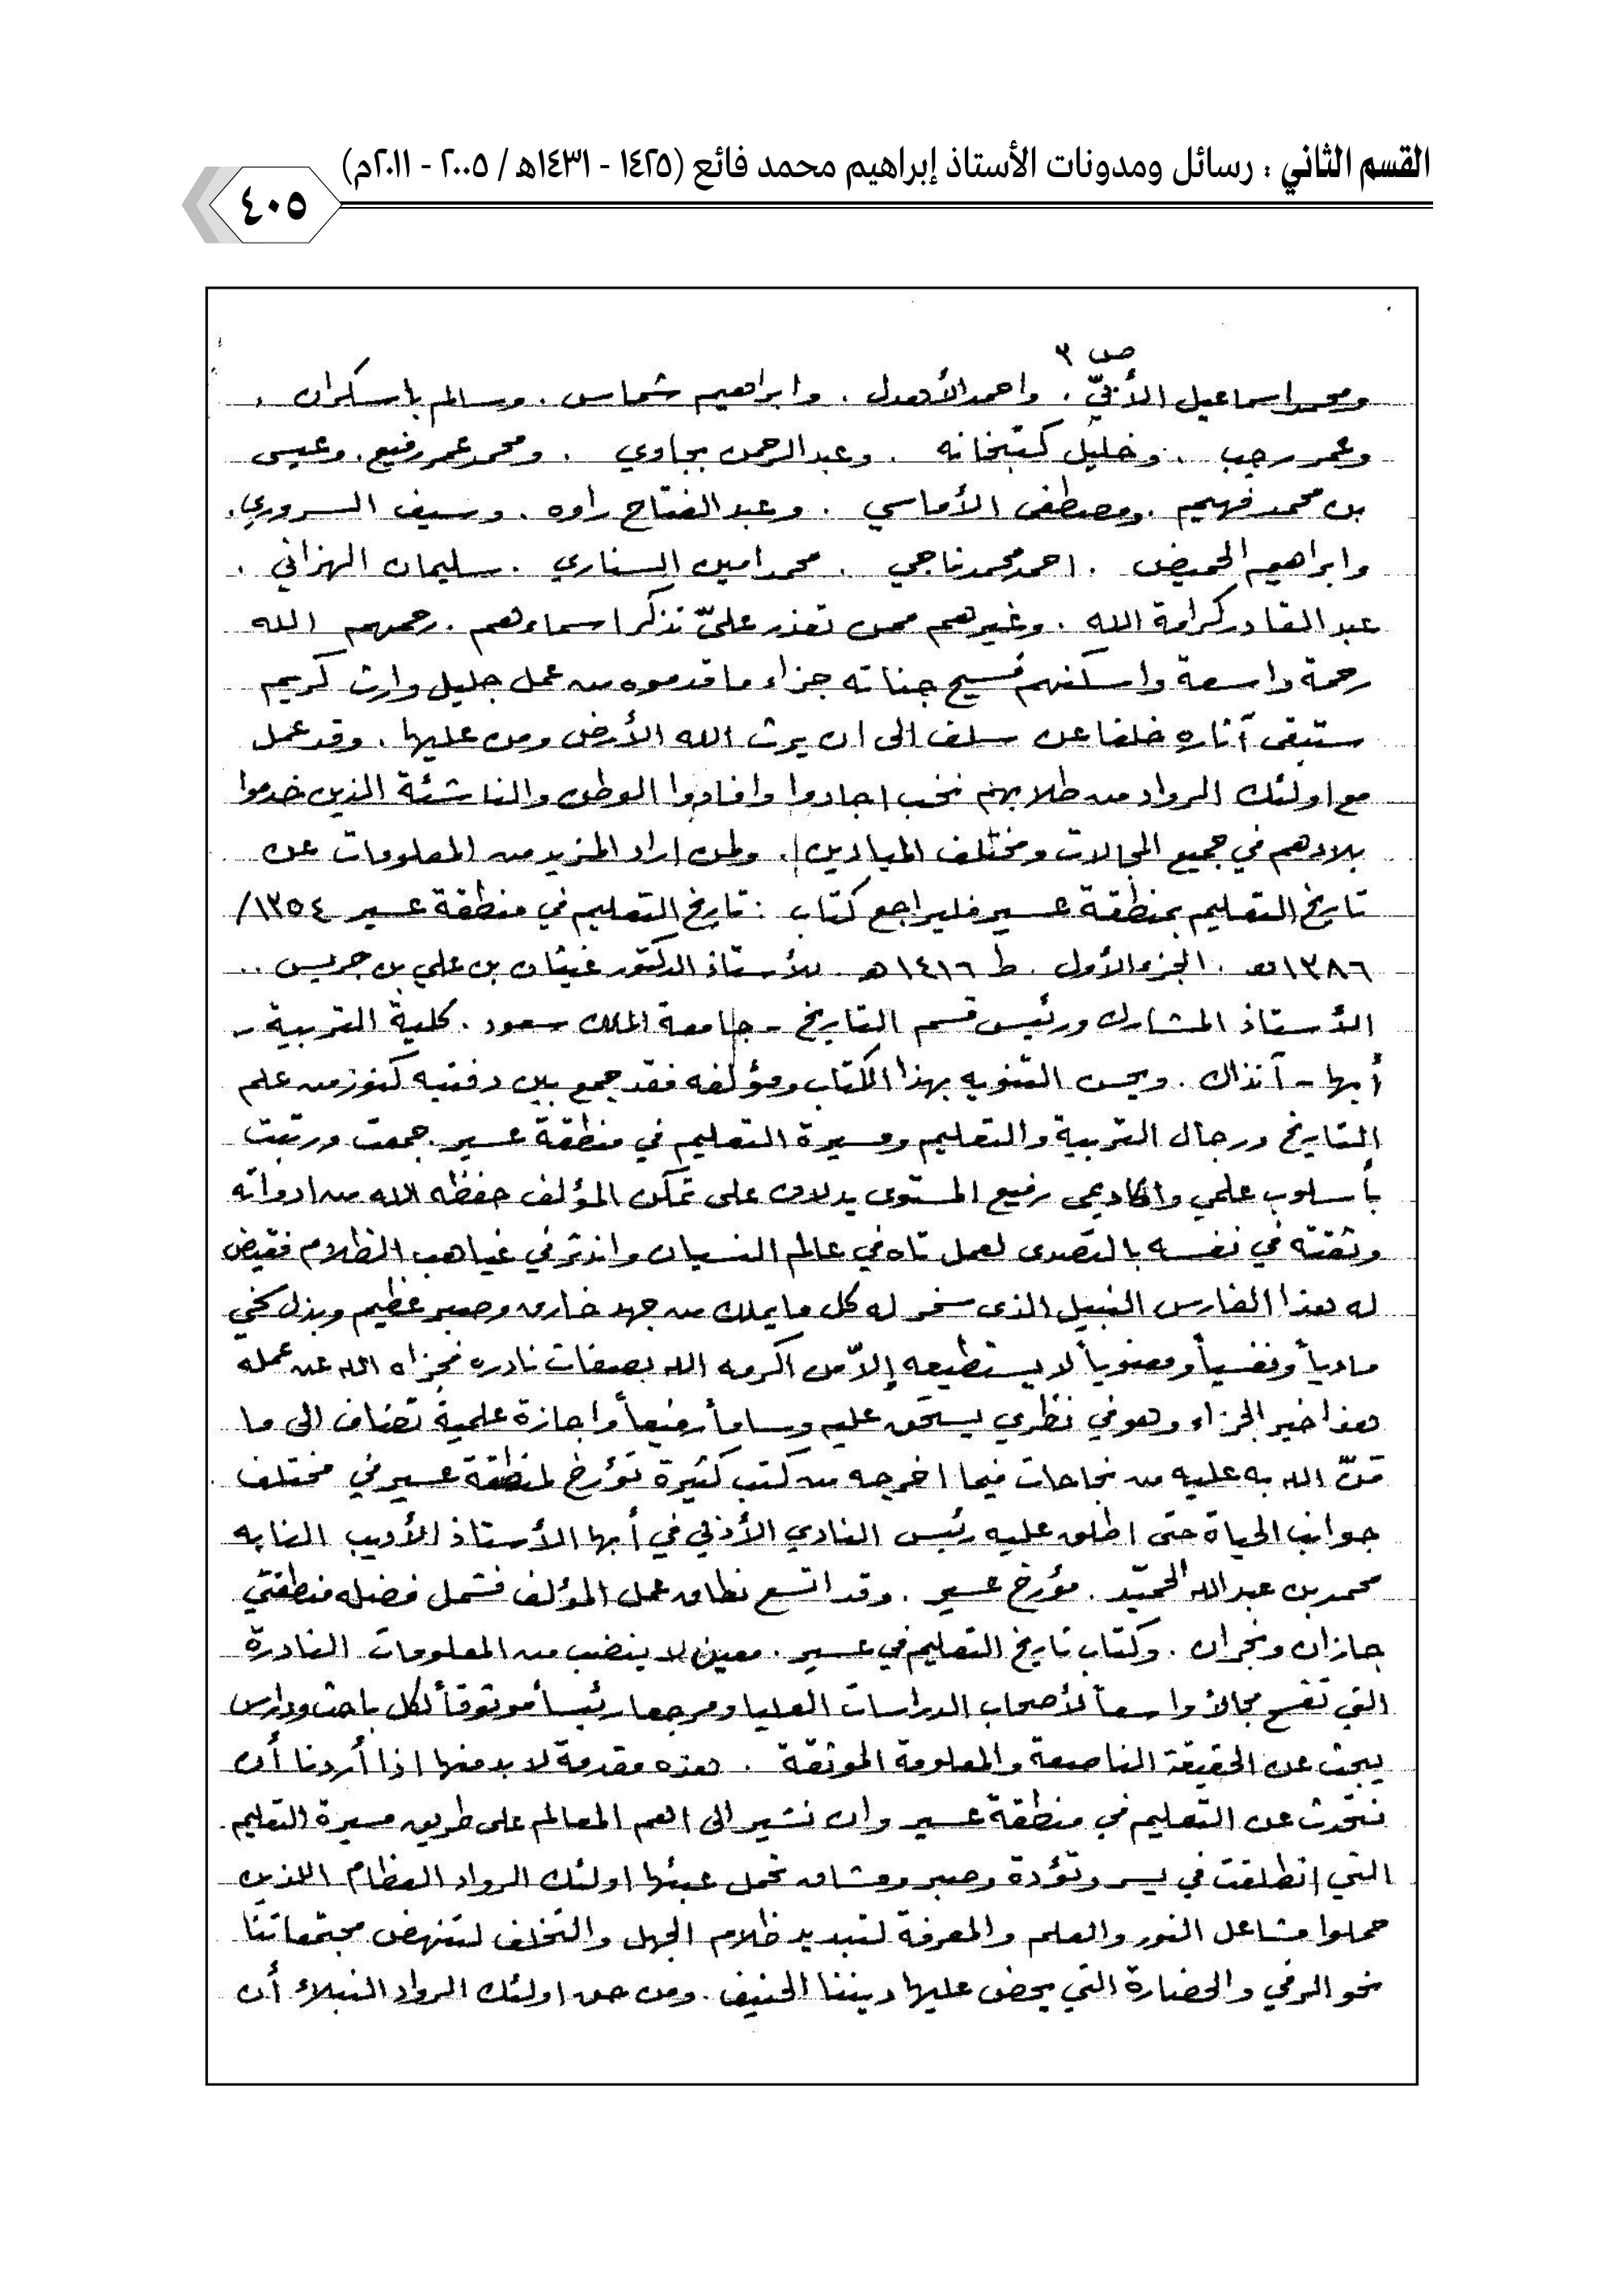 القسم الثاني : رسائل ومدونات الأستاذ إبراهيم محمد فائع (١٤٢٥ - ١٤٣١هـ / ٢٠٠٥ - ٢٠١١م)
٤٠٥
ص ٣
ومحمد اسماعيل . واحمد الأهدل . وابراهيم شماس . وسالم باسكران .
وعمر رجب . وخليل كتبخانه . وعبد الرحمن بجاوي . ومحمد عمر رفيع . وعيسى
بن محمد فهيم . ومصطفى الأماسي . وعبد الفتاح راوه . وسيف السروري .
وابراهيم الحميضي . احمد محمد ناجي . محمد امين السناري . سليمان الهزاني .
عبد القادر كرامة الله . وغيرهم ممن تعذر عليّ تذكر اسماءهم . رحمهم الله
رحمة واسعة واسكنهم فسيح جناته جزاء ما قدموه من عمل جليل وارث كريم
ستبقى آثاره خلفا عن سلف الى ان يرث الله الأرض ومن عليها . وقد عمل
مع اولئك الرواد من طلابهم نخب اجادوا وافادوا الوطن والناشئة الذين خدموا
بلادهم في جميع المجالات ومختلف الميادين . ولمن اراد المزيد من المعلومات عن
تاريخ التعليم بمنطقة عسير فليراجع كتاب : تاريخ التعليم في منطقة عسير ١٣٥٤/
١٣٨٦هـ . الجزء الأول . ط ١٤١٦هـ . للأستاذ الدكتور غيثان بن علي بن جريس ..
الأستاذ المشارك ورئيس قسم التاريخ - جامعة الملك سعود . كلية التربية -
أبها - آنذاك . ويحسن التنويه بهذا الكتاب ومؤلفه فقد جمع بين دفتيه كنوز من علم
التاريخ ورجال التربية والتعليم ومسيرة التعليم في منطقة عسير . جمعت ورتبت
بأسلوب علمي واكاديمي رفيع المستوى يدلان على تمكن المؤلف حفظه الله من ادواته
وثقته في نفسه بالتصدى لعمل تاه في عالم النسيان واندثر في غياهب الظلام فقيض
له هذا الفارس النبيل الذى سخر له كل ما يملك من جهد خارق وصبر عظيم وبذل سخي
مادياً ونفسياً ومعنوياً لا يستطيعه إلاّ من اكرمه الله بصفات نادره فجزاه الله عن عمله
هذا خير الجزاء وهو في نظري يستحق عليه وساماً رفيعاً واجازة علمية تضاف الى ما
منّ الله به عليه من نجاحات فيما اخرجه من كتب كثيرة تؤرخ لمنطقة عسير في مختلف
جوانب الحياة حتى اطلق عليه رئيس النادي الأدبي في أبها الأستاذ الأديب النابه
محمد بن عبد الله الحميّد . مؤرخ عسير . وقد اتسع نطاق عمل المؤلف فشمل فضله منطقتي
جازان ونجران . وكتاب تاريخ التعليم في عسير . معين لا ينضب من المعلومات النادرة
التي تفسح مجالاً واسعاً لأصحاب الدراسات العليا ومرجعا رئيساً موثوقاً لكل باحث ودارس
يبحث عن الحقيقة الناصعة والمعلومة الموثقة . هذه مقدمة لا بد منها اذا أردنا أن
نتحدث عن التعليم في منطقة عسير وان نشير الى اهم المعالم على طريق مسيرة التعليم .
التي انطلقت في يسر وتؤدة وصبر ومشاق تحمل عبئها اولئك الرواد العظام اللذين
حملوا مشاعل النور والعلم والمعرفة لتبديد ظلام الجهل والتخلف لتنهض مجتمعاتنا
نحو الرقي والحضارة التي يحض عليها ديننا الحنيف . ومن حق اولئك الرواد النبلاء أن